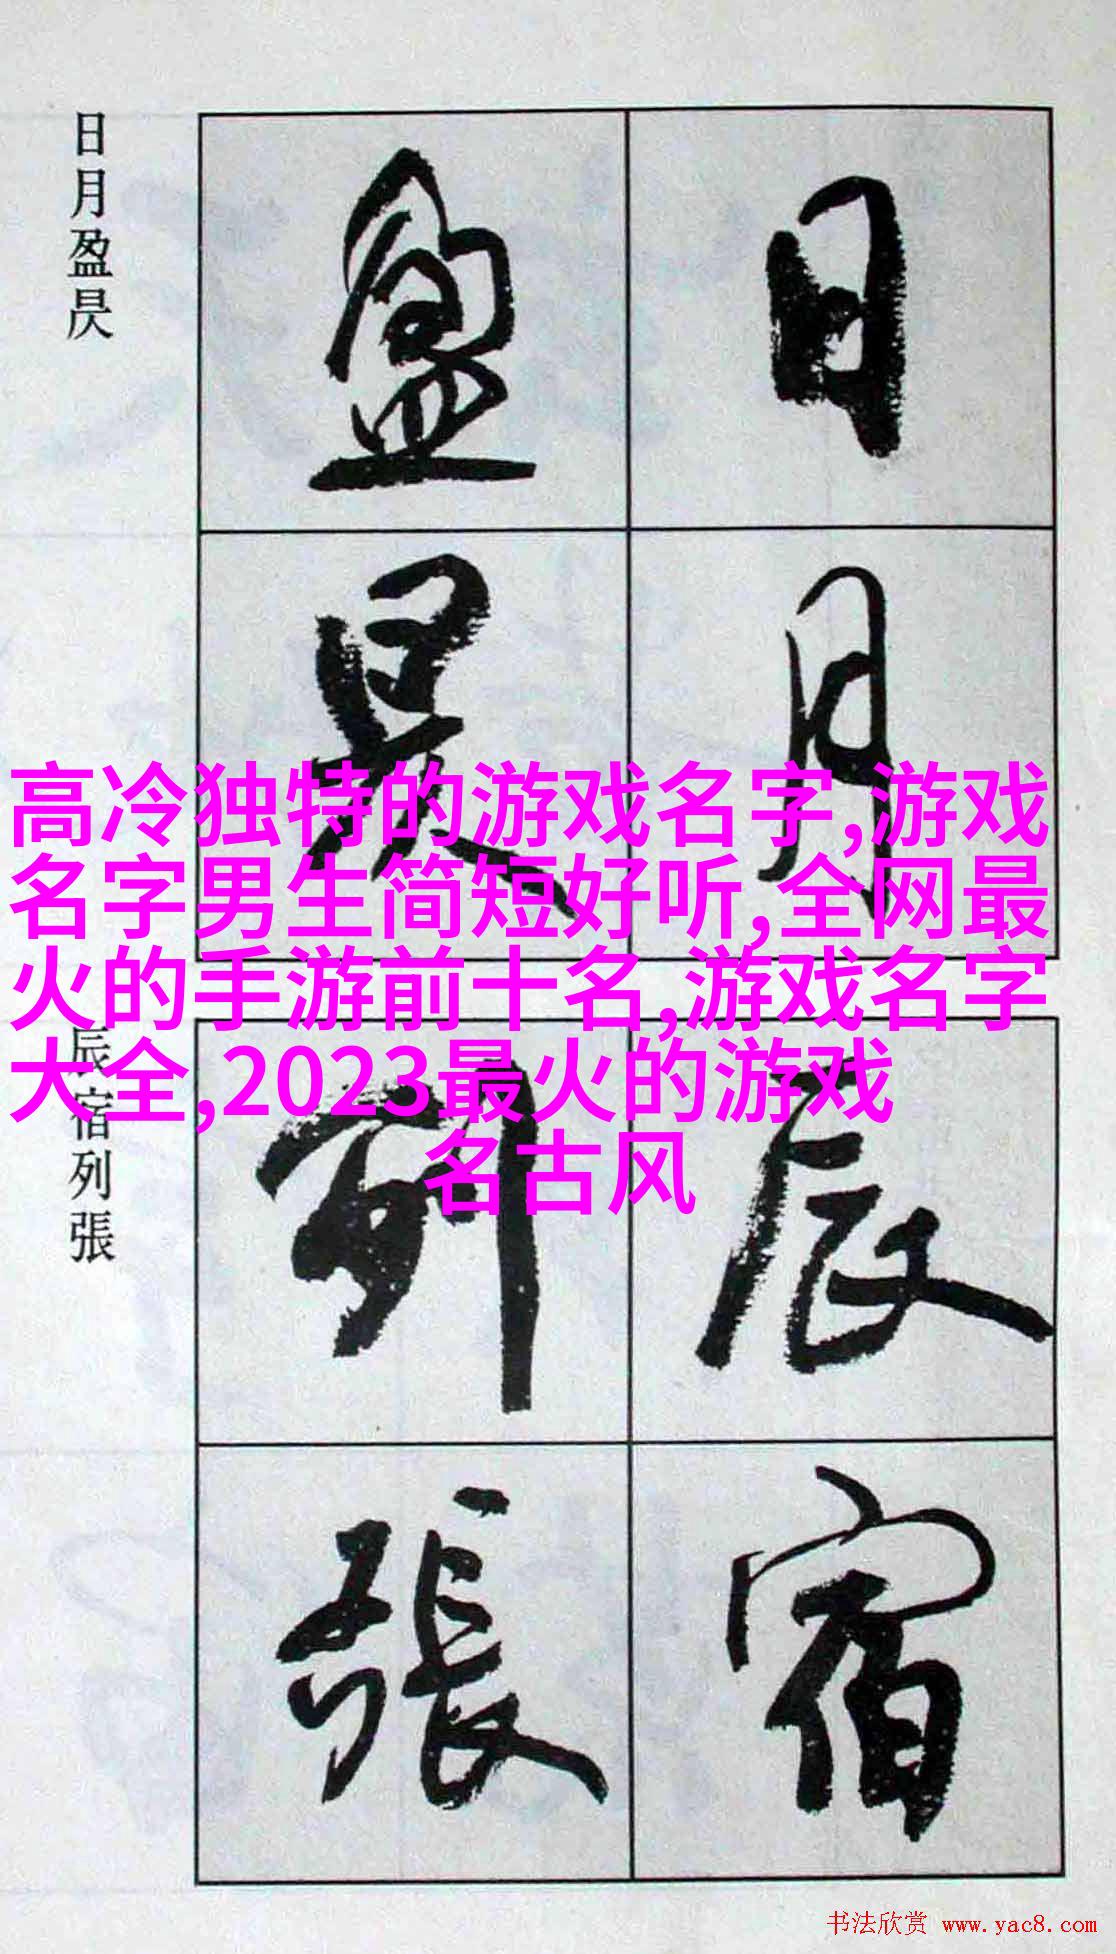 日月盈昃
日
月
盈
昃
高冷独特的游戏名字,游戏
名字男生简短好听,全网最
火的手游前十名,游戏名字
大全,2023最火的游戏
名古风
辰宿列張
辰
宿
列
張
书法欣赏 www.yac8.com